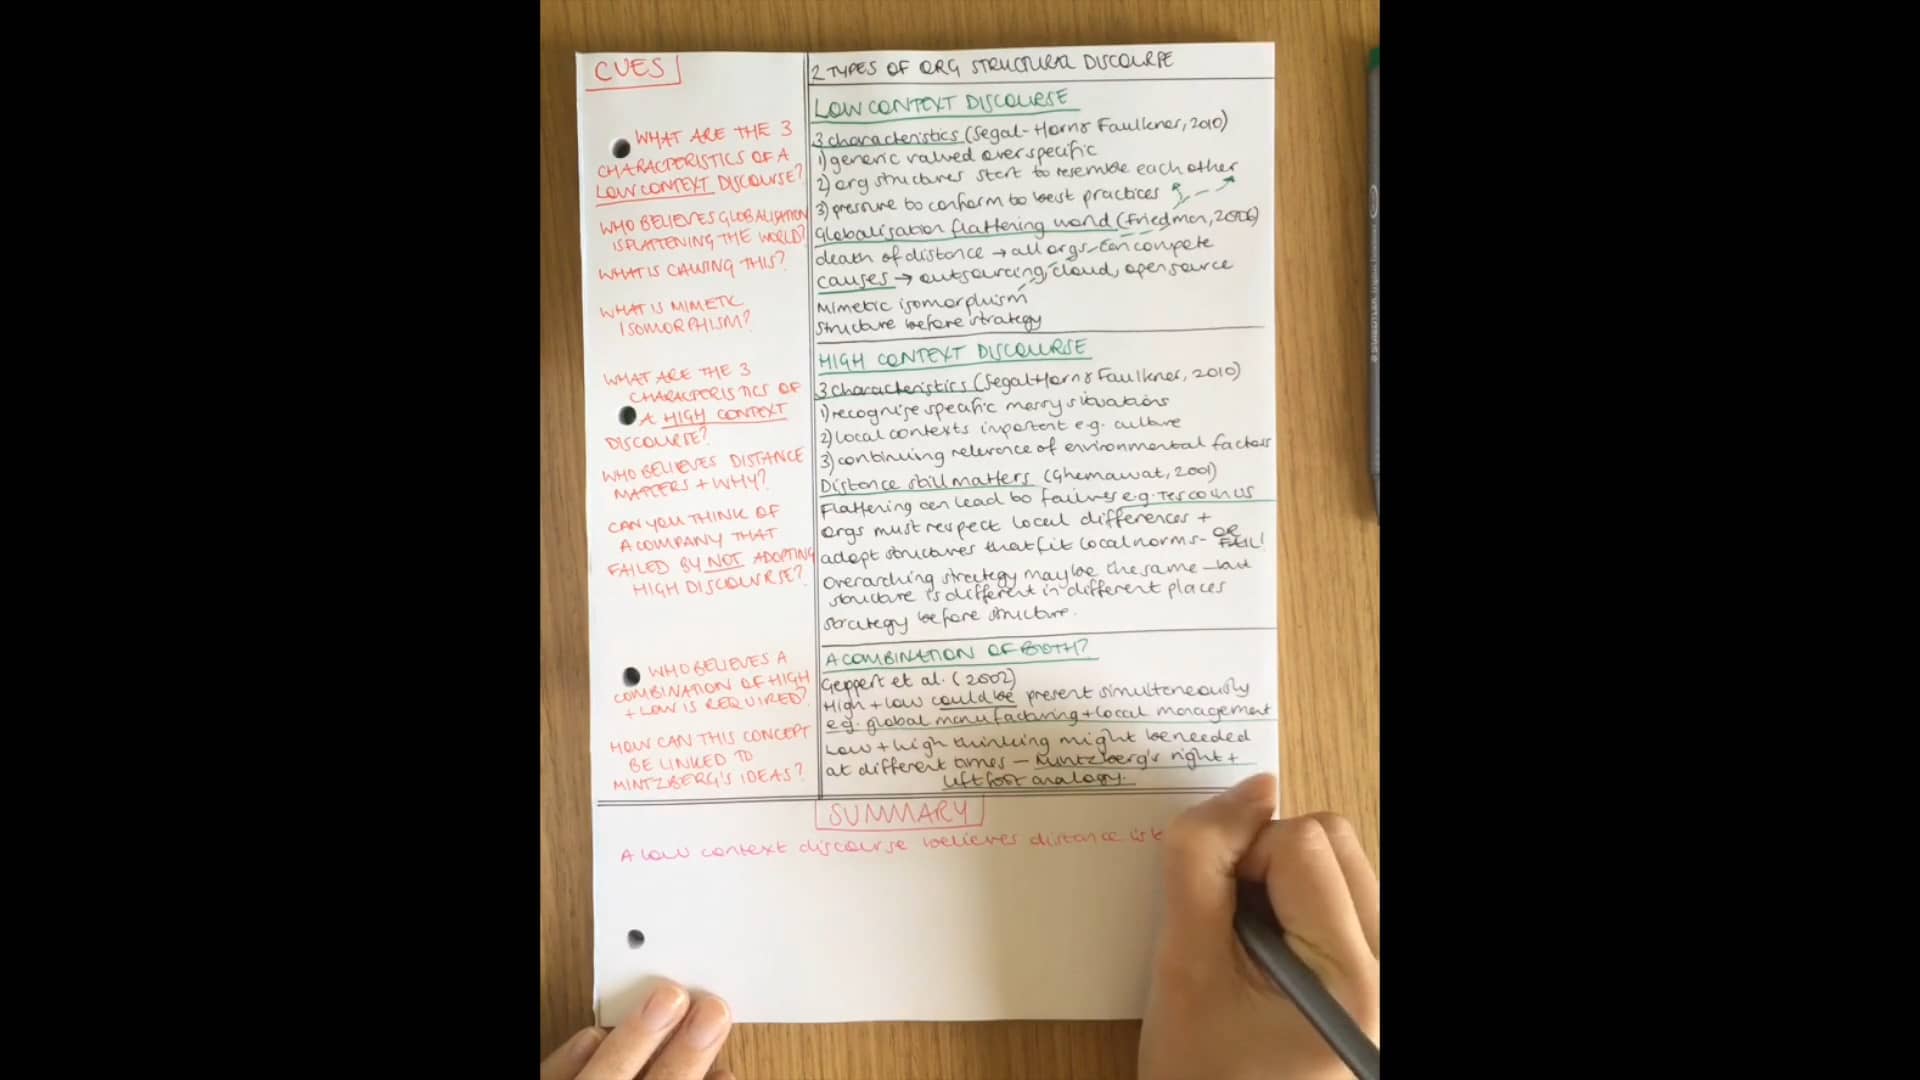 CUES
WHAT ARE THE 3
CHARACTERISTICS OF A
LOW CONTEXT DISCOURSE?
WHO BELIEVES GLOBALISATION
IS FLATTENING THE WORLD?
WHAT IS CAUSING THIS?
WHAT IS MIMETIC
ISOMORPHISM?
WHAT ARE THE 3
CHARACTERISTICS OF
A HIGH CONTEXT
DISCOURSE?
WHO BELIEVES DISTANCE
MATTERS + WHY?
CAN YOU THINK OF
A COMPANY THAT
FAILED BY NOT ADOPTING
HIGH DISCOURSE?
WHO BELIEVES A
COMBINATION OF HIGH
+ LOW IS REQUIRED?
HOW CAN THIS CONCEPT
BE LINKED TO
MINTZBERG'S IDEAS?
2 TYPES OF ORG STRUCTURAL DISCOURSE
LOW CONTEXT DISCOURSE
3 characteristics (Segal-Horn & Faulkner, 2010)
1) generic valued over specific
2) org structures start to resemble each other
3) pressure to conform to best practices
Globalisation flattening world (Friedman, 2006)
death of distance → all orgs can compete
causes → outsourcing, cloud, open source
Mimetic isomorphism
Structure before strategy
HIGH CONTEXT DISCOURSE
3 characteristics (Segal-Horn & Faulkner, 2010)
1) recognise specific messy situations
2) local contexts important e.g. culture
3) continuing relevance of environmental factors
Distance still matters (Ghemawat, 2001)
Flattening can lead to failures e.g. Tesco in US
Orgs must respect local differences +
adopt structures that fit local norms - OR
FAIL!
Overarching strategy may be the same - but
structure is different in different places
Strategy before structure.
A COMBINATION OF BOTH?
Geppert et al. (2002)
High + low could be present simultaneously
e.g. global manufacturing + local management
Low + high thinking might be needed
at different times - Mintzberg's right +
left foot analogy.
SUMMARY
A low context discourse believes distance is